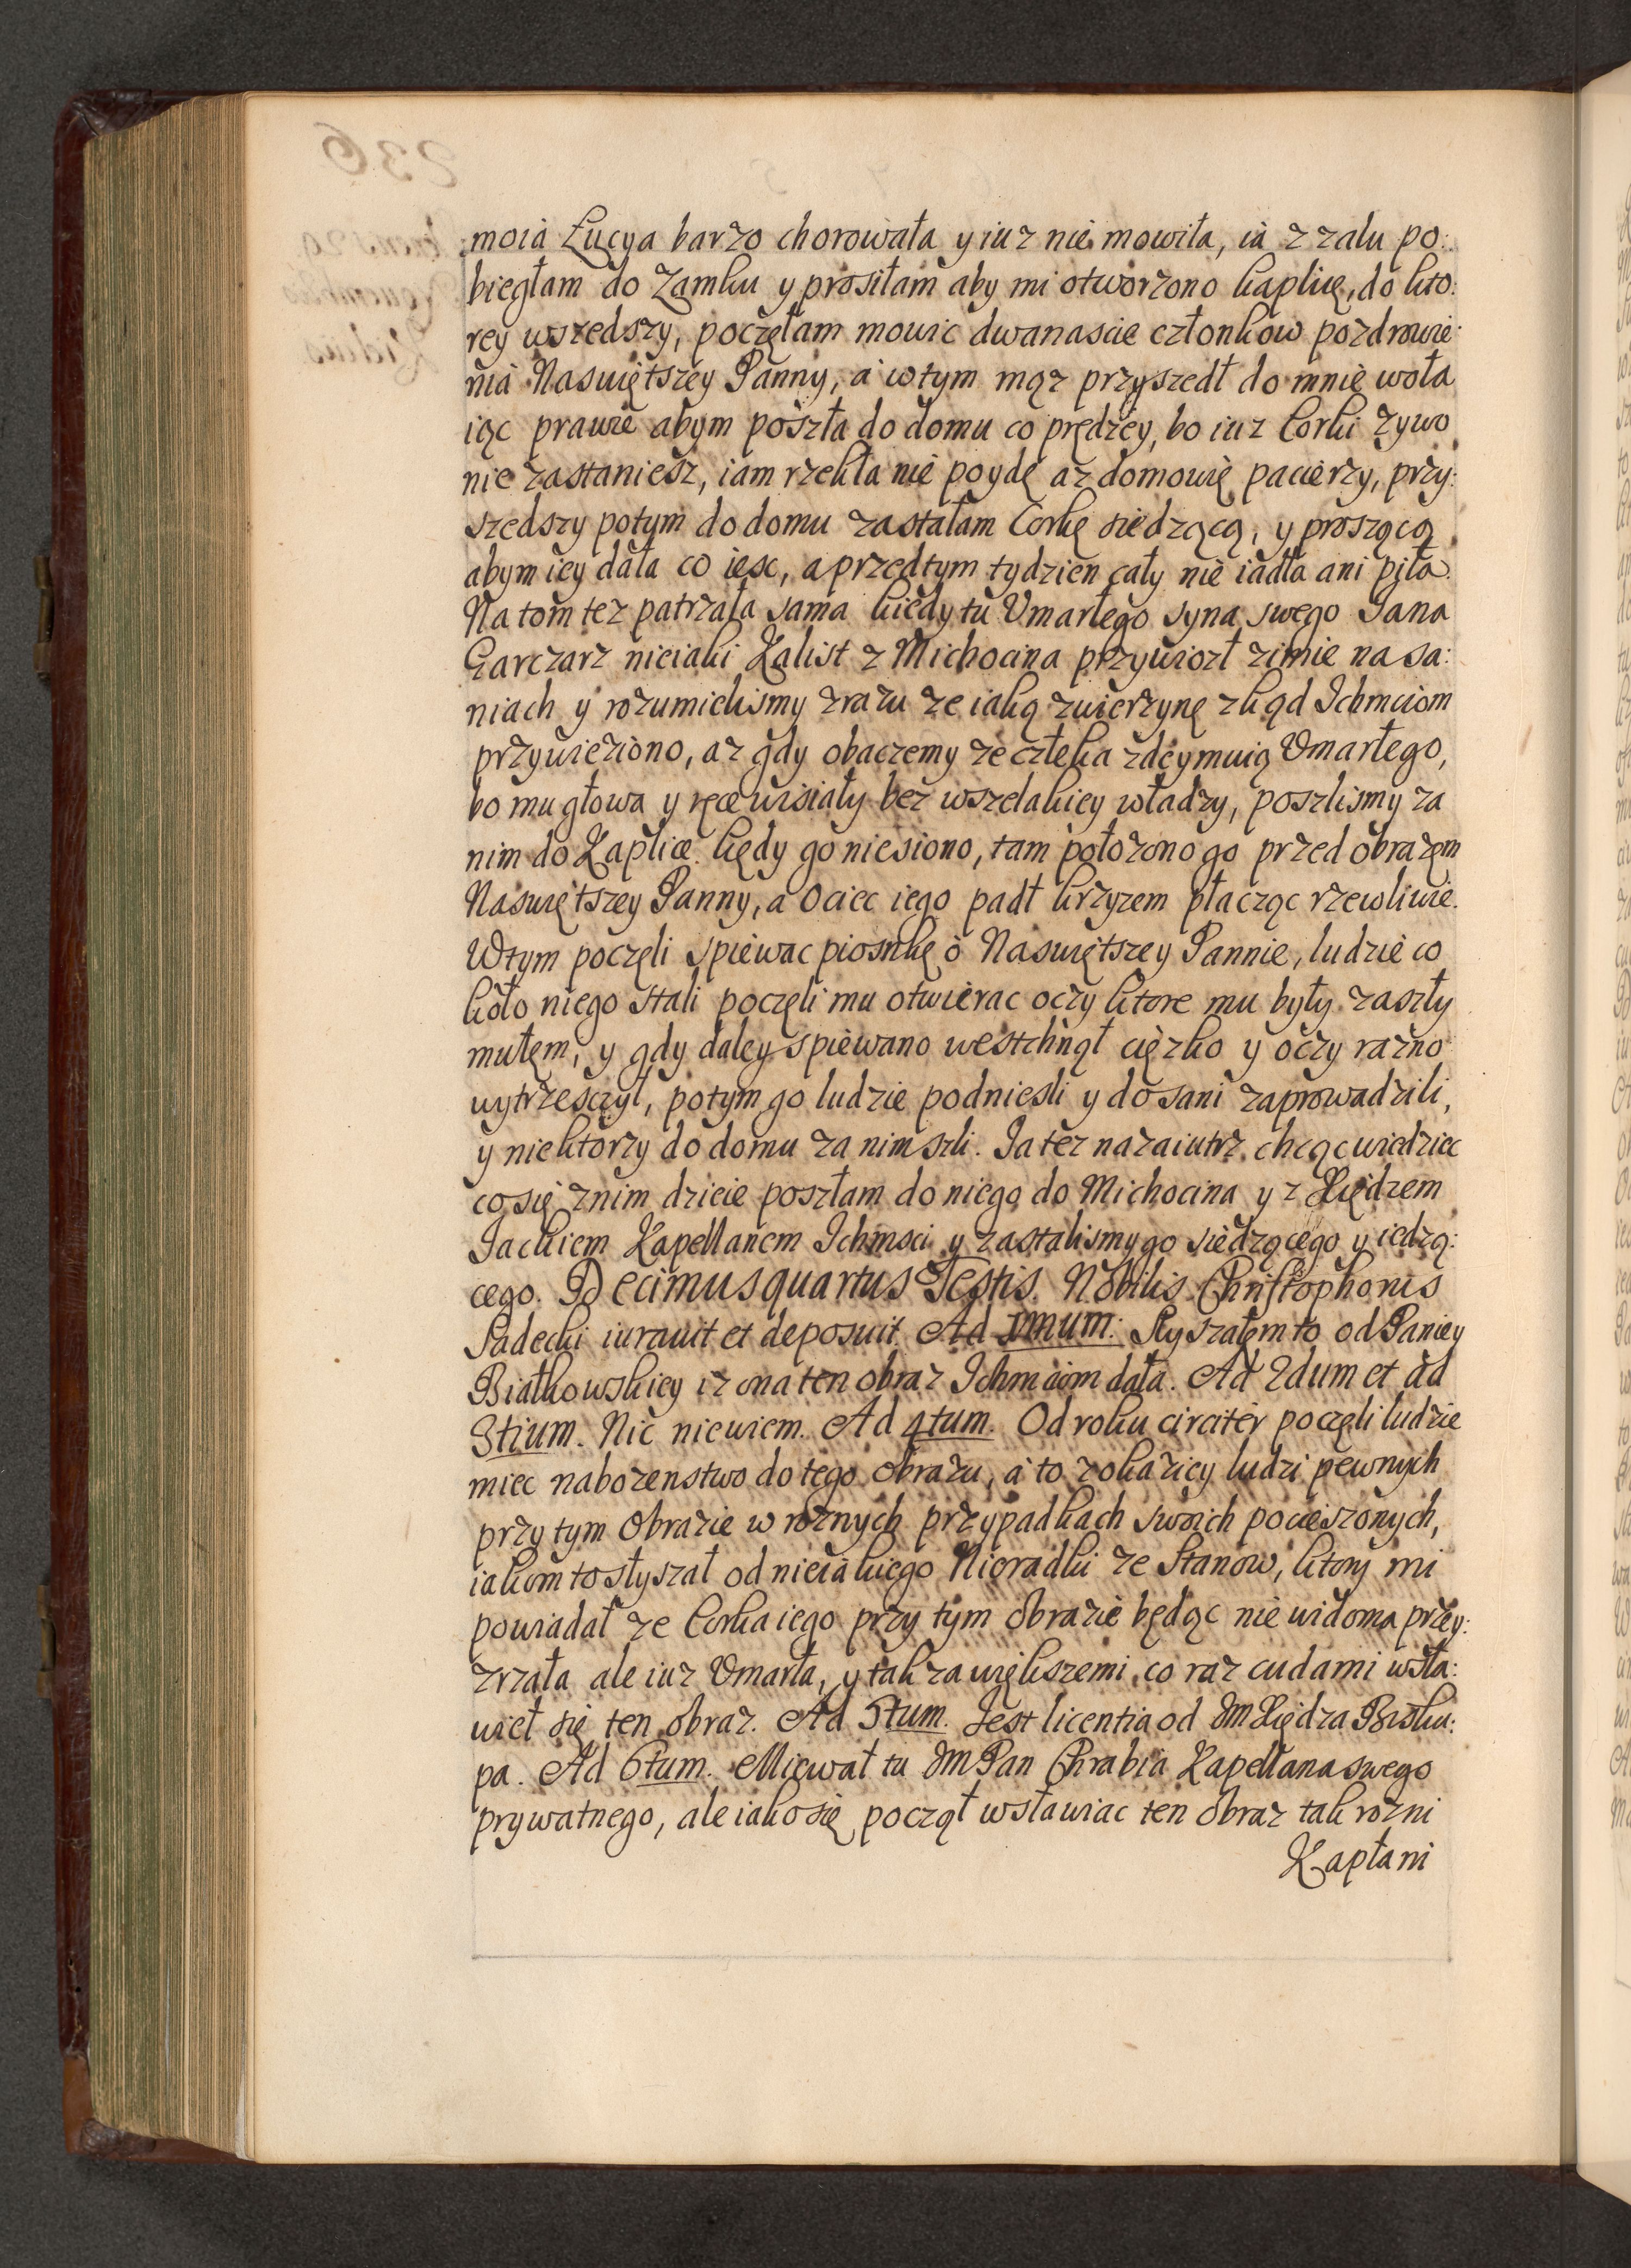 moiá Łucya barzo chorowáła y iuz nie mowiła, iá z zalu po:
biegłam do Zamku y prosiłam aby mi otworzono kaplicę, do kto:
rey wszedszy, poczęłam mowic dwanascie członkow pozdrowie:
niá Naswiętszey Panny, á wtym mąz przyszedł do mnie woła
iąc prawie abym poszła do domu co prędzey, bo iuz Corki zywo
nie zastaniesz, iam rzekła nie poydę az domowię pacierzy, przy:
szedszy potym do domu zastałam Corkę siedzącą, y proszącą
abym iey dała co iesc, a przedtym tydzien cały nie iadła ani piła.
Na tom tez patrzała sama kiedy tu Vmarłego syna swego Jana
Garczarz nieiaki Kalist z Michocina przywiozł zimie na sa:
niach y rozumielismy zrazu ze iaką zwierzynę zkąd Ichmciom
przywieziono, az gdy obaczemy ze człeka zdeymuią Vmarłego,
bo mu głowa y ręce wisiały bez wszelakiey władzy, poszlismy za
nim do Kaplice kędy go niesiono, tam połozono go przed obrazem
Naswiętszey Panny, a Ociec iego padł krzyzem płacząc rzewliwie.
Wtym poczęli spiewac piosnkę o Naswiętszey Pannie, ludzie co
koło niego stali poczęli mu otwierac oczy ktore mu były zaszły
mułem, y gdy daley spiewano westchnął cięzko y oczy razno
wytrzesczył, potym go ludzie podniesli y do sani zaprowadzili,
y niektorzy do domu za nim szli. Ja tez nazaiutrz chcąc wiedziec
co się znim dzieie poszłam do niego do Michocina y z Xiędzem
Jackiem Kapellanem Ichmsci y zastalismy go siedzącego y iedzą:
cego. Decimusquartus Testis. Nobilis Christophorus
Sadecki iurauit et deposuit Ad Imum: Słyszałem to od Paniey
Białkowskiey iz ona ten obraz Ichmciom dała. Ad 2dum et ad
3tium. Nic niewiem. Ad 4tum. Od roku circiter poczęli ludzie
miec nabozenstwo do tego obrazu, á to z okaziey ludzi pewnych
przy tym Obrazie w roznych przypadkach swoich pocieszonych,
iakom to słyszał od nieiakiego Nieradki ze Stanow, ktory mi
powiadał ze Corka iego przy tym obrazie będąc nie widoma przey:
zrzała ale iuz Vmarła, y tak za większemi co raz cudami wsła:
wieł się ten obraz. Ad 5tum. Jest licentia od Jm Xiędza Bisku:
pa. Ad 6tum. Miewał tu Jm Pan Chrabia Kapellana swego
prywatnego, ale iako się począł wsławiac ten obraz tak rozni
Kapłani